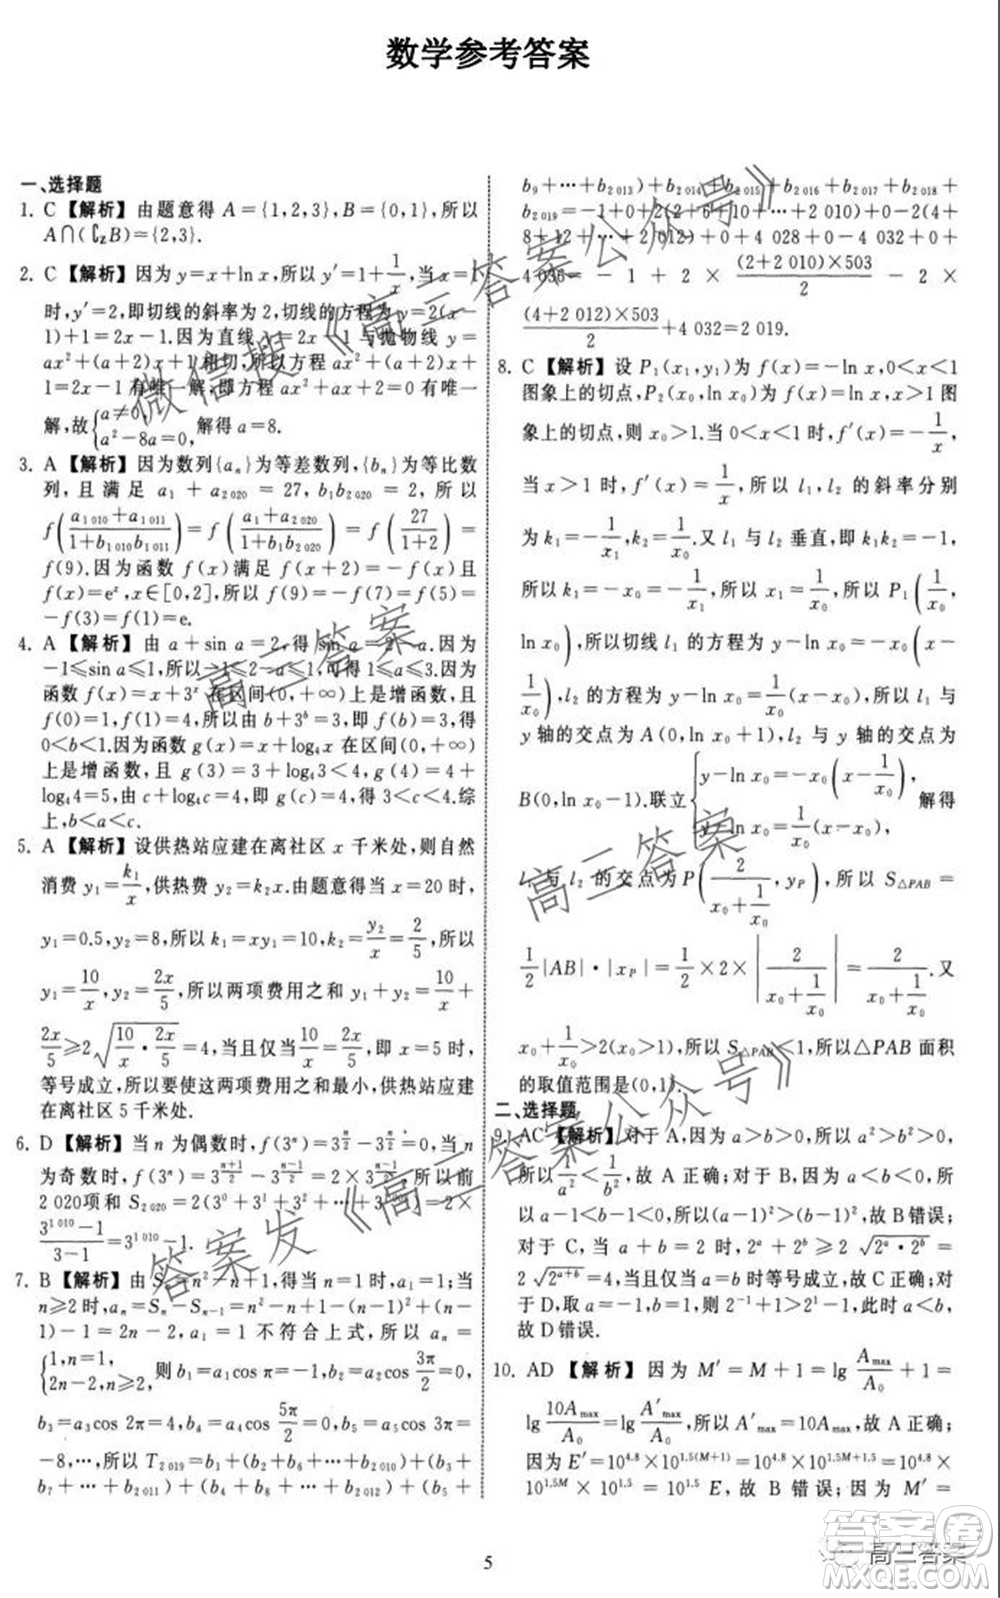 数学参考答案
一、选择题
1. C【解析】由题意得 A={1,2,3},B={0,1},所以
A∩(∁_Z B)={2,3}.
2. C【解析】因为 y=x+ln x,所以 y′=1+1/x,当 x=1
时,y′=2,即切线的斜率为2,切线的方程为 y=2(x-
1)+1=2x-1.因为直线 y=2x-1 与抛物线 y=
ax²+(a+2)x+1 相切,所以方程 ax²+(a+2)x+1
=2x-1 有唯一解,即方程 ax²+ax+2=0 有唯一
解,故{a≠0, a²-8a=0, 解得 a=8.
3. A【解析】因为数列{aₙ}为等差数列,{bₙ}为等比数
列,且满足 a₁+a₂₀₂₀=27,b₁b₂₀₂₀=2,所以
f((a₁₀₁₀+a₁₀₁₁)/(1+b₁₀₁₀b₁₀₁₁))=f((a₁+a₂₀₂₀)/(1+b₁b₂₀₂₀))=f(27/(1+2))=
f(9).因为函数 f(x)满足 f(x)=f(x-2)且
f(x)=eˣ,x∈[0,2],所以 f(9)=f(7)=f(5)=
f(3)=f(1)=e.
4. A【解析】由 a+sin a=2,得 sin a=2-a.因为
-1≤sin a≤1,所以-1≤2-a≤1,得 1≤a≤3.因为
函数 f(x)=x+3ˣ 在区间(0,+∞)上是增函数,且
f(0)=1,f(1)=4,所以由 b+3ᵇ=3,即 f(b)=3,得
0<b<1.因为函数 g(x)=x+log₄x 在区间(0,+∞)
上是增函数,且 g(3)=3+log₄3<4,g(4)=4+
log₄4=5,由 c+log₄c=4,即 g(c)=4,得 3<c<4.综
上,b<a<c.
5. A【解析】设供热站应建在离社区 x 千米处,则自然
消费 y₁=k₁/x,供热费 y₂=k₂x.由题意得当 x=20 时,
y₁=0.5,y₂=8,所以 k₁=xy₁=10,k₂=y₂/x=2/5,所以
y₁=10/x,y₂=2x/5,所以两项费用之和 y₁+y₂=10/x+
2x/5≥2√(10/x·2x/5)=4,当且仅当10/x=2x/5,即 x=5 时,
等号成立,所以要使这两项费用之和最小,供热站应建
在离社区5千米处.
6. D【解析】当 n 为偶数时,f(3ⁿ)=3^(n/2)-3^(n/2)=0,当 n
为奇数时,f(3ⁿ)=3^((n+1)/2)-3^((n-1)/2)=2×3^((n-1)/2),所以前
2 020项和 S₂₀₂₀=2(3⁰+3¹+3²+…+3¹⁰⁰⁹)=2×
(3¹⁰¹⁰-1)/(3-1)=3¹⁰¹⁰-1.
7. B【解析】由 Sₙ=n²-n+1,得当 n=1 时,a₁=1;当
n≥2时,aₙ=Sₙ-Sₙ₋₁=2n-2,a₁=1 不符合上式,所以 aₙ=
{1,n=1, 2n-2,n≥2. b₁=a₁cos π=-1,b₂=a₂cos 3π/2=0,
b₃=a₃cos 2π=4,b₄=a₄cos 5π/2=0,b₅=a₅cos 3π=
-8,…,所以 T₂₀₁₉=(b₂+b₄+…+b₂₀₁₈)+(b₃+
b₇+…+b₂₀₁₉)+(b₁+b₅+
b₉+…+b₂₀₁₃)+b₂₀₁₇+b₂₀₁₅+b₂₀₁₈+
b₂₀₁₉=-1+0+2(2+6+10+…+2 010)-2(4+
8+12+…+2 012)+0+4 028+0-4 032+0+
4 036=-1+2×(2+2 010)×503/2-2×
(4+2 012)×503/2+4 032=2 019.
8. C【解析】设 P₁(x₁,y₁)为 f(x)=-ln x,0<x<1
图象上的切点,P₂(x₀,ln x₀)为 f(x)=ln x,x>1 图
象上的切点,则 x₀>1.当 0<x<1 时,f′(x)=-1/x,
当 x>1 时,f′(x)=1/x,所以 l₁,l₂ 的斜率分别
为 k₁=-1/x₁,k₂=1/x₀.又 l₁ 与 l₂ 垂直,即 k₁k₂=-1,
所以 k₁=-1/x₁=-x₀,所以 x₁=1/x₀,所以 P₁(1/x₀,
ln x₀),所以切线 l₁ 的方程为 y-ln x₀=-x₀(x-
1/x₀),l₂ 的方程为 y-ln x₀=1/x₀(x-x₀),所以 l₁ 与
y 轴的交点为 A(0,ln x₀+1),l₂ 与 y 轴的交点为
B(0,ln x₀-1).联立{y-ln x₀=-x₀(x-1/x₀), y-ln x₀=1/x₀(x-x₀), 解得
l₁ 与 l₂ 的交点为 P(2/(x₀+1/x₀),y_P),所以 S△PAB=
1/2|AB|·|x_P|=1/2×2×|2/(x₀+1/x₀)|=2/(x₀+1/x₀).又
x₀+1/x₀>2(x₀>1),所以 S△PAB<1,所以△PAB 面积
的取值范围是(0,1).
二、选择题
9. AC【解析】对于 A,因为 a>b>0,所以 a²>b²>0,
所以1/a²<1/b²,故 A 正确;对于 B,因为 a<b<0,所以
a-1<b-1<0,所以(a-1)²>(b-1)²,故 B 错误;
对于 C,当 a+b=2 时,2ᵃ+2ᵇ≥2√(2ᵃ·2ᵇ)=
2√(2ᵃ⁺ᵇ)=4,当且仅当 a=b 时等号成立,故 C 正确;
对于D,因为 a=-1,b=1,则 2⁻¹+1>2¹-1,此时 a<b,
故 D 错误.
10. AD【解析】因为 M′=M+1=lg Aₘₐₓ/A₀+1=
lg 10Aₘₐₓ/A₀=lg A′ₘₐₓ/A₀,所以 A′ₘₐₓ=10Aₘₐₓ,故 A 正确;
因为 E′=10^4.8×10^1.5(M+1)=10^4.8×10^1.5M+1.5
=10^4.8×10^1.5M×10^1.5=10^1.5 E,故 B,C 错误;因为 M′=
5
微信搜《高三答案公众号》
高三答案
高三答案
答案发《高三答案公众号》
答案卷
高三答案
MXQE.COM